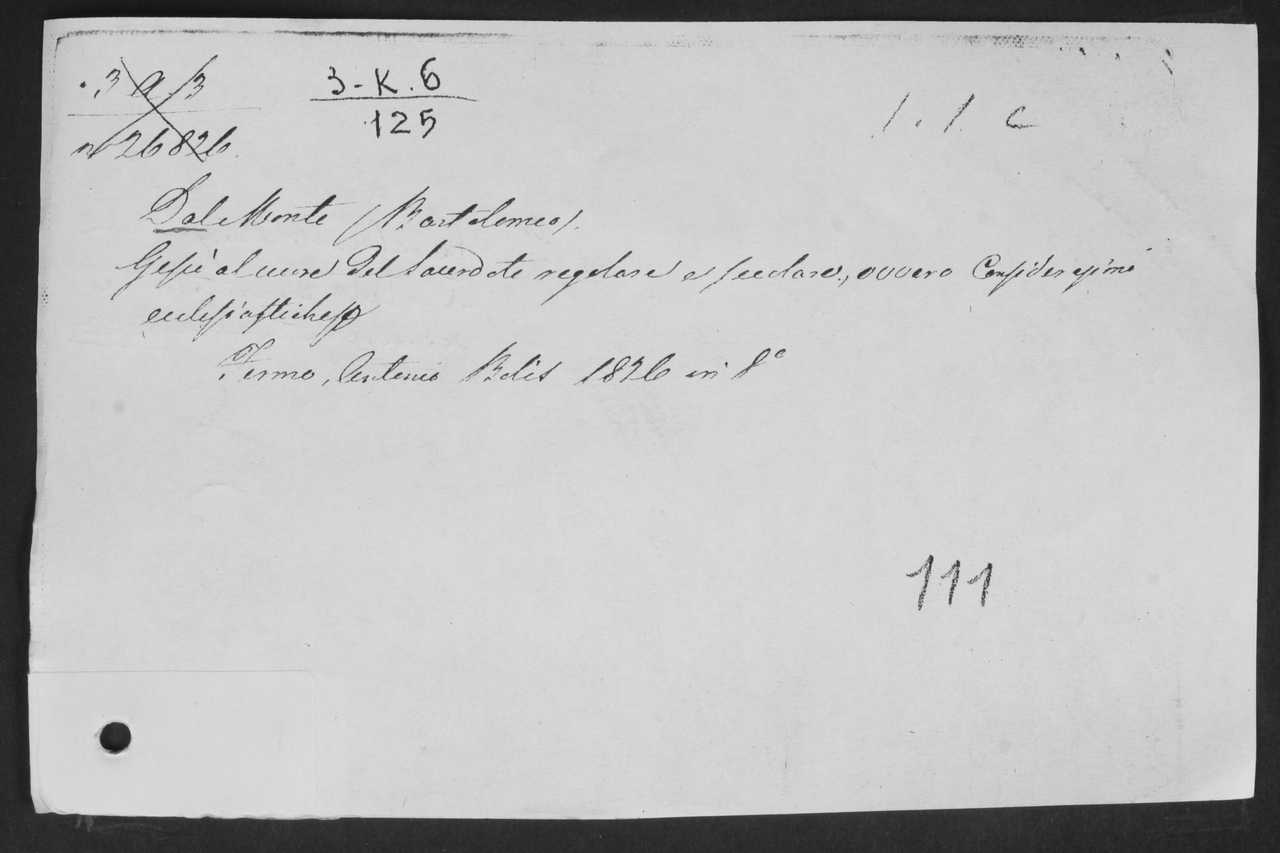 3 a /3
3-K.6
125
1.1 c
nº 26826.
Dal Monte (Bartolomeo).
Gesù al cuore del Sacerdote regolare e secolare, ovvero Considerazioni
ecclesiastiche
Fermo, Antonio Bolis 1826 in 8º
111